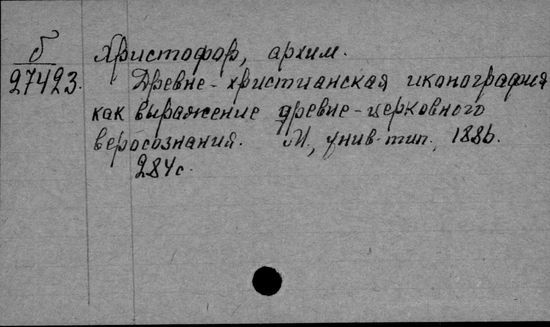 б Христофор, архим.
27423. Древне-христианская иконография
как выражение древне-церковного
веросознания. М., унив. тип., 1886.
284с.